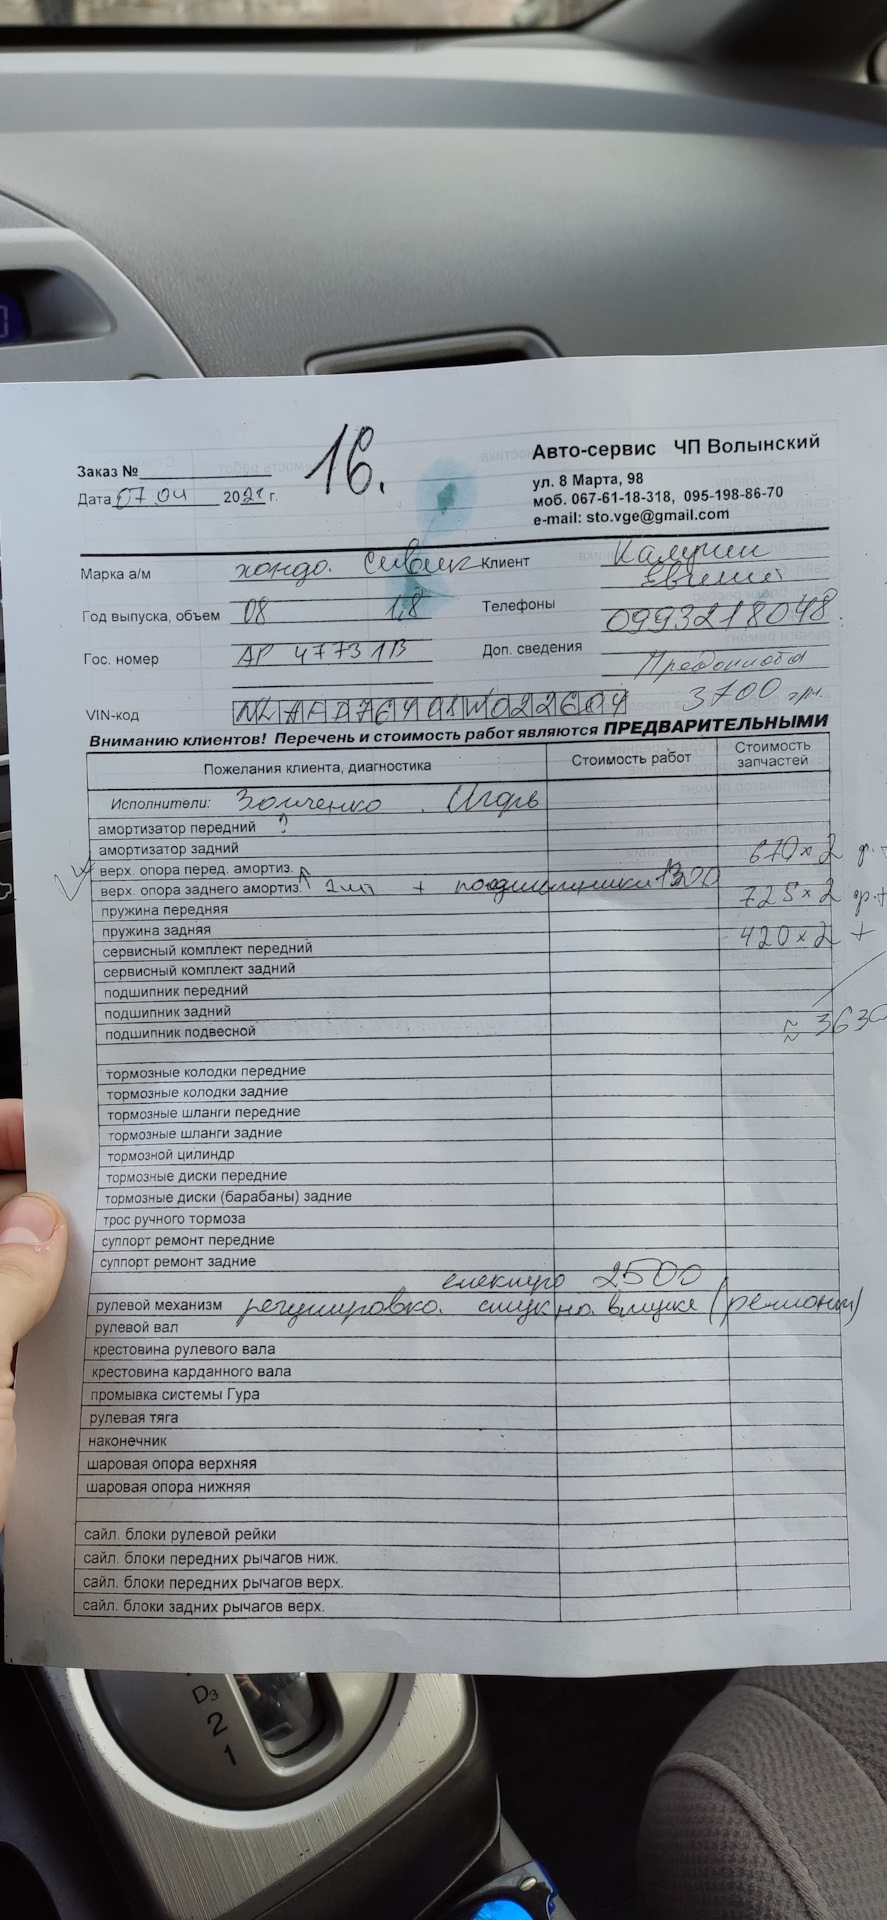 16.
Авто-сервис ЧП Волынский
Заказ №
ул. 8 Марта, 98
Дата 07 04 2021 г.
моб. 067-61-18-318, 095-198-86-70
e-mail: sto.vge@gmail.com
Марка а/м хондо. сивик Клиент
Евгений
Год выпуска, объем 08 1,8 Телефоны 0993218048
Гос. номер АР 4773 ІВ Доп. сведения Предоплата
3700 грн.
VIN-код
Вниманию клиентов! Перечень и стоимость работ являются ПРЕДВАРИТЕЛЬНЫМИ
Пожелания клиента, диагностика Стоимость работ Стоимость запчастей
Исполнители: Зойченко Игорь
амортизатор передний ?
амортизатор задний 670x2
верх. опора перед. амортиз.
верх. опора заднего амортиз. 2шт + подшипники 1300 725x2
пружина передняя
пружина задняя 420x2 +
сервисный комплект передний
сервисный комплект задний
подшипник передний
подшипник задний
подшипник подвесной ≈ 3630
тормозные колодки передние
тормозные колодки задние
тормозные шланги передние
тормозные шланги задние
тормозной цилиндр
тормозные диски передние
тормозные диски (барабаны) задние
трос ручного тормоза
суппорт ремонт передние
суппорт ремонт задние
електро 2500
рулевой механизм регулировка. стук на втулке (ремонт)
рулевой вал
крестовина рулевого вала
крестовина карданного вала
промывка системы Гура
рулевая тяга
наконечник
шаровая опора верхняя
шаровая опора нижняя
сайл. блоки рулевой рейки
сайл. блоки передних рычагов ниж.
сайл. блоки передних рычагов верх.
сайл. блоки задних рычагов верх.
D3
2
1